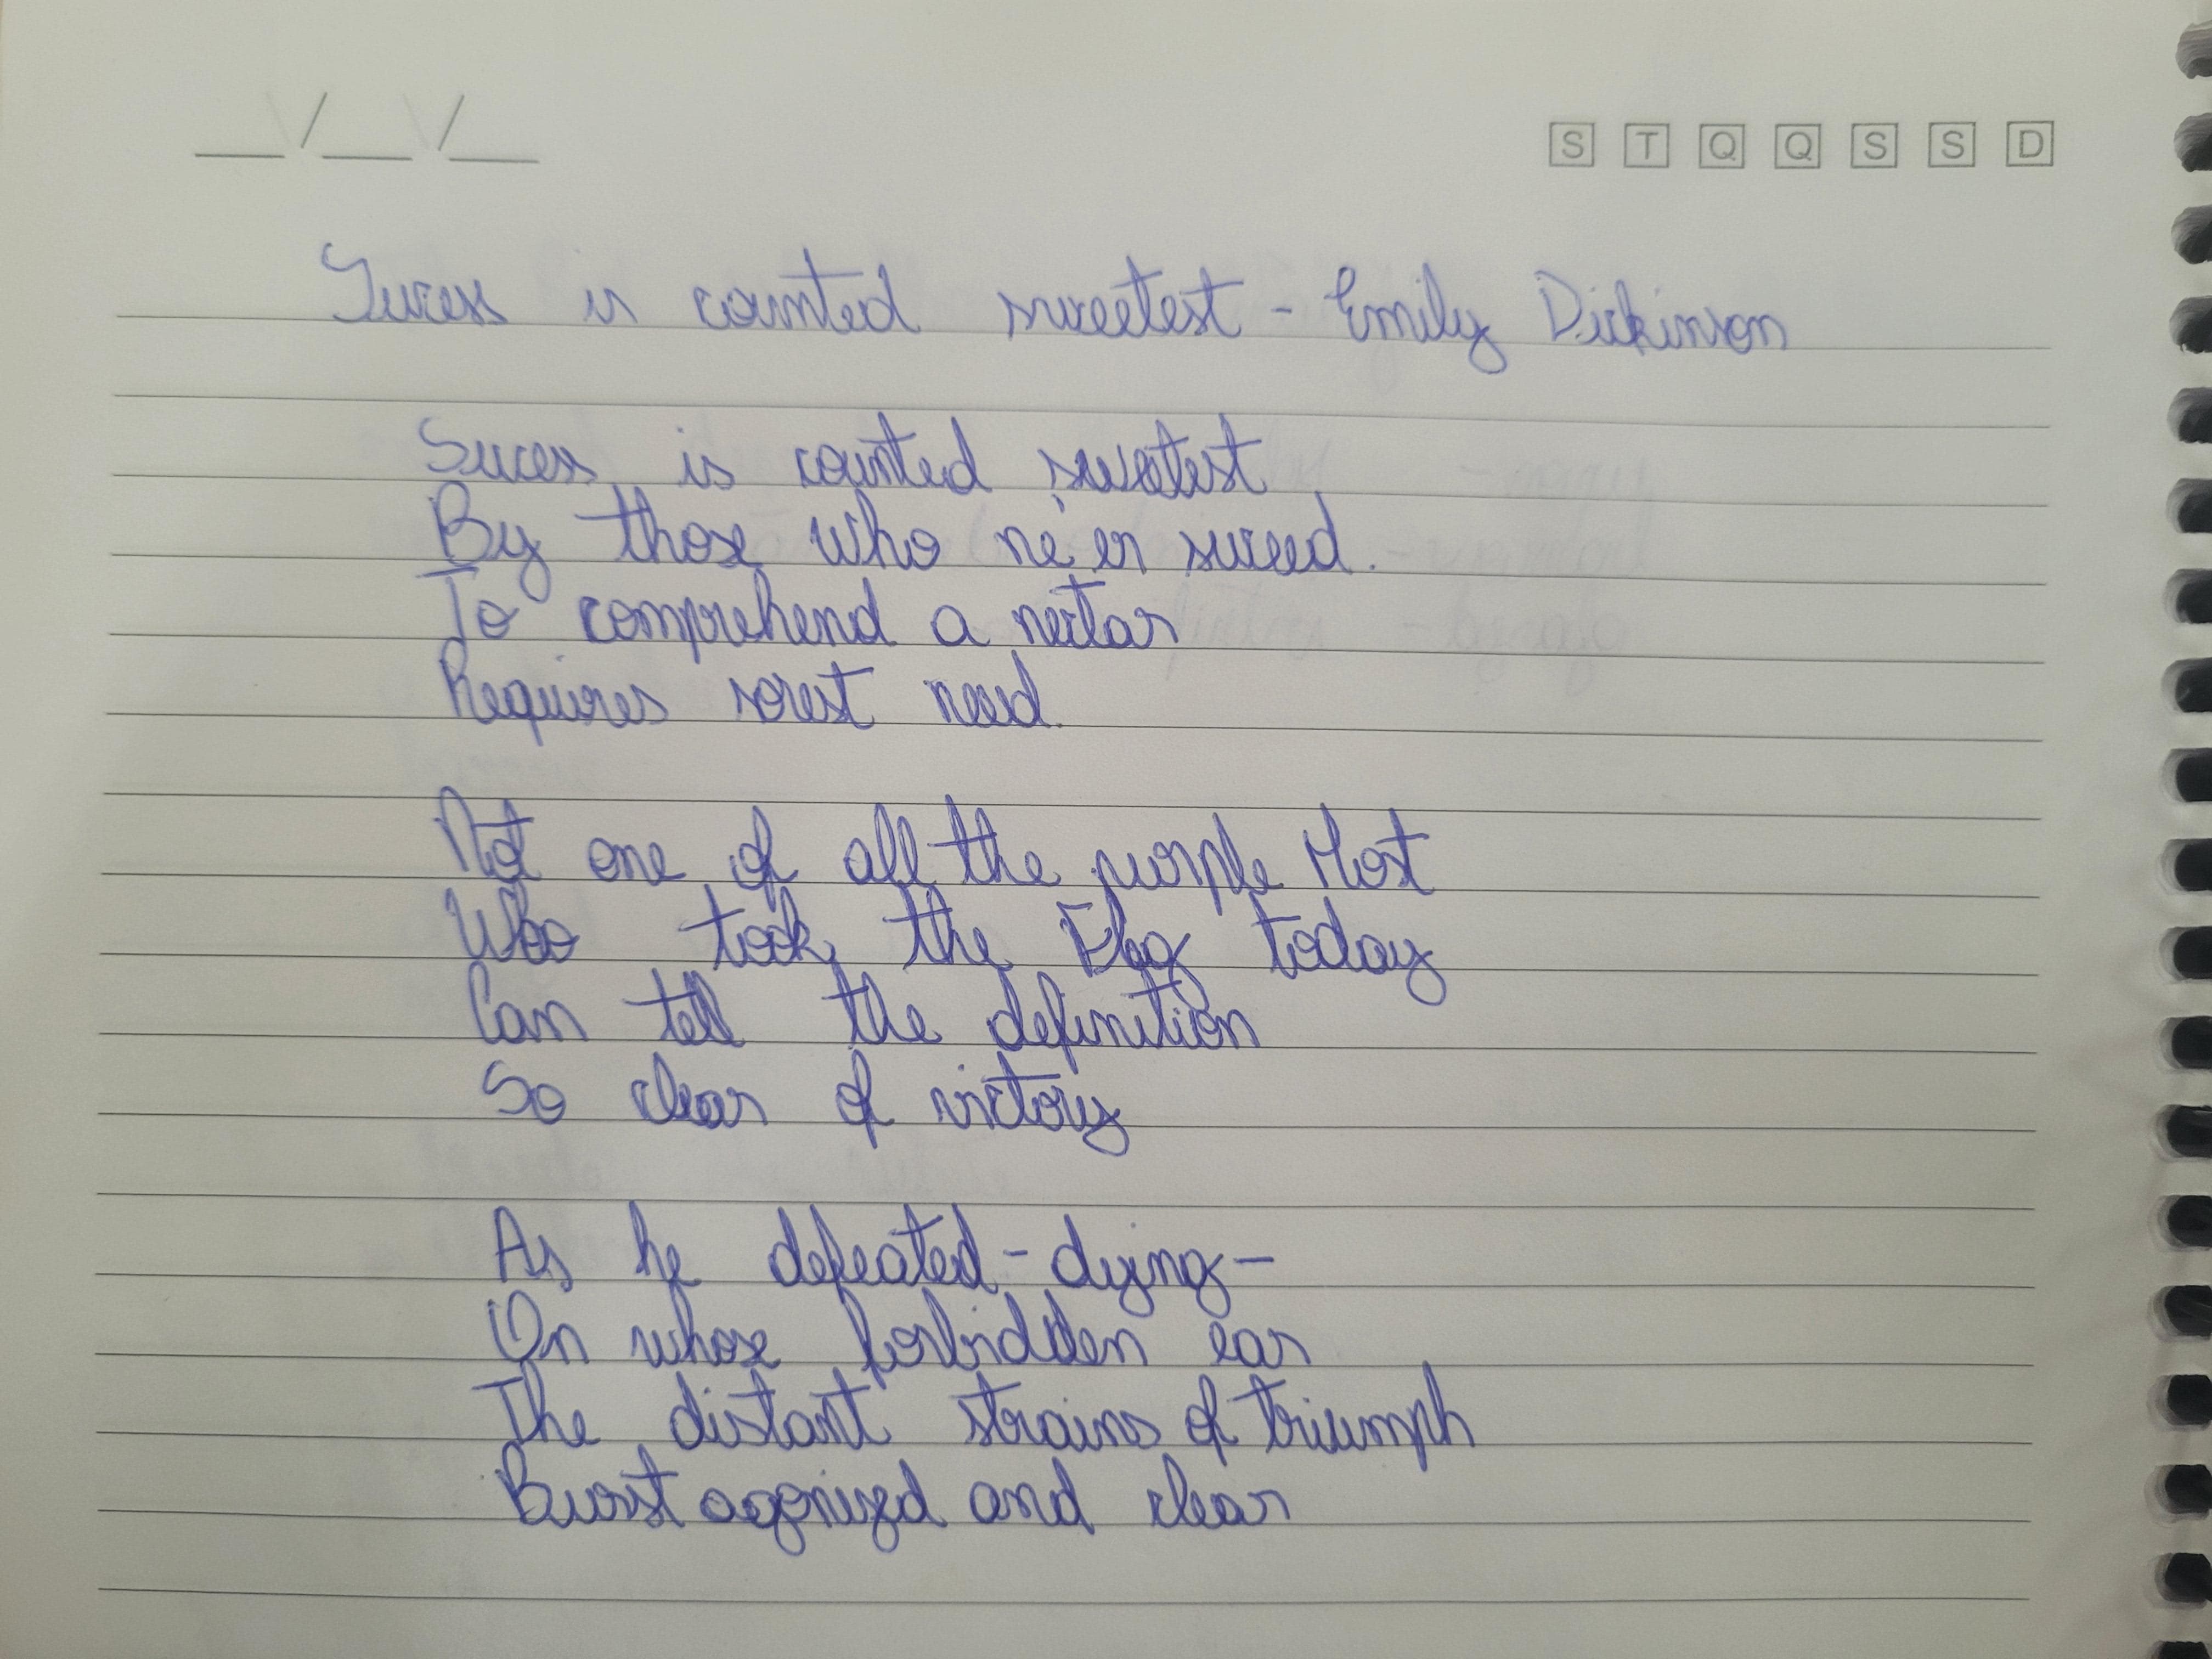 __/__/__ S T Q Q S S D
Sucess is counted sweetest - Emily Dickinson
Sucess is counted sweetest
By those who ne'er succed.
To comprehend a nectar
Requires sorest need.
Not one of all the purple Host
Who took the Flag today
Can tell the definition
So clear of victory
As he defeated - dying -
On whose forbidden ear
The distant strains of triumph
Burst agonized and clear